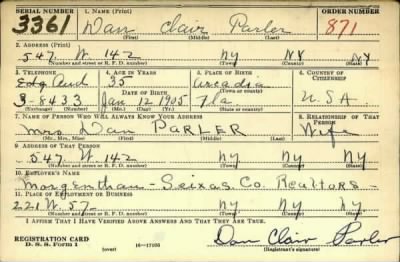 SERIAL NUMBER 1. NAME (Print) ORDER NUMBER
3361 Dan Clair Parler 871
(First) (Middle) (Last)
2. ADDRESS (Print)
547 W 142 NY NY NY
(Number and street or R. F. D. number) (Town) (County) (State)
3. TELEPHONE 4. AGE IN YEARS 5. PLACE OF BIRTH 6. COUNTRY OF CITIZENSHIP
Edg Aud 35 Arcadia
DATE OF BIRTH (Town or county)
3-8433 Jan 12 1905 Fla U.S.A
(Exchange) (Number) (Mo.) (Day) (Yr.) (State or country)
7. NAME OF PERSON WHO WILL ALWAYS KNOW YOUR ADDRESS 8. RELATIONSHIP OF THAT PERSON
Mrs Dan PARLER Wife
(Mr., Mrs., Miss) (First) (Middle) (Last)
9. ADDRESS OF THAT PERSON
547 W 142 NY NY NY
(Number and street or R. F. D. number) (Town) (County) (State)
10. EMPLOYER'S NAME
Morgenthau - Seixas Co. Realtors -
11. PLACE OF EMPLOYMENT OR BUSINESS
221 W. 57 NY NY NY
(Number and street or R. F. D. number) (Town) (County) (State)
I AFFIRM THAT I HAVE VERIFIED ABOVE ANSWERS AND THAT THEY ARE TRUE.
REGISTRATION CARD
D. S. S. Form 1 (over) 16-17105 Dan Clair Parler
(Registrant's signature)